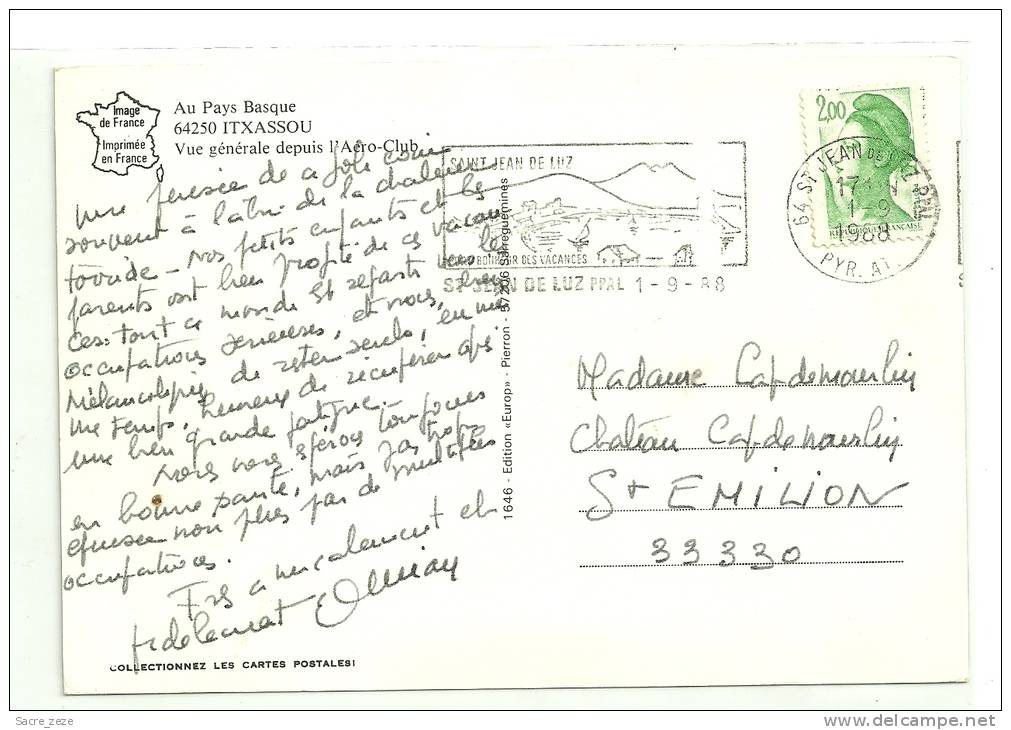 Image
de France
Imprimée
en France
Au Pays Basque
64250 ITXASSOU
Vue générale depuis l'Aéro-Club
une pensée de ce joli coin
souvent à l'abri de la chaleur
torride - Nos petits enfants et les
parents ont bien profité de ces vacan
ces: tout ce monde est reparti vers les
occupations sérieuses, et nous, bien
mélancoliques de rester seuls, en mê
me temps, heureux de récupérer après
une bien grande fatigue.
Nous vous espérons toujours
en bonne santé, mais pas trop
épuisée non plus par de multiples
occupations.
Très amicalement et
fidèlement
COLLECTIONNEZ LES CARTES POSTALES!
1646 - Edition «Europ» - Pierron - 57206 Sarreguemines
SAINT JEAN DE LUZ
BONHEUR DES VACANCES
ST JEAN DE LUZ PPAL 1-9-88
2,00
RÉPUBLIQUE FRANÇAISE
64 ST JEAN DE LUZ PPAL
1-9
1988
PYR. AT.
Madame Capdemourlin
Château Capdemourlin
St EMILION
33330
Sacre_zeze
www.delcampe.net